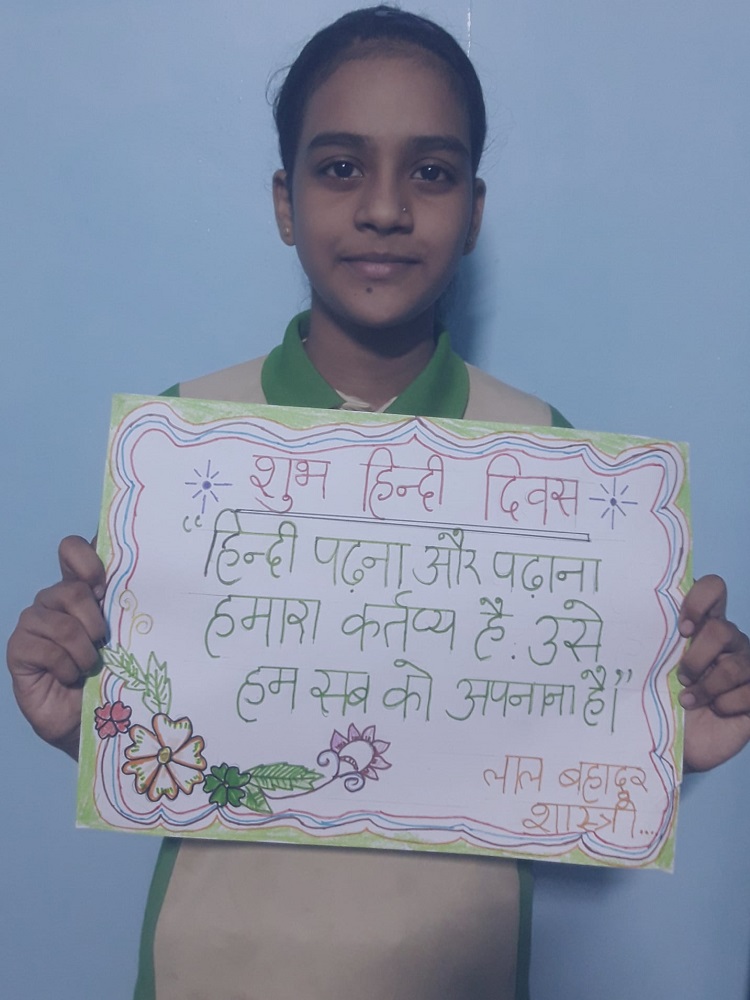 शुभ हिन्दी दिवस
“हिन्दी पढ़ना और पढ़ाना
हमारा कर्तप्य है. उसे
हम सब को अपनाना है।”
लाल बहादूर
शास्त्री...